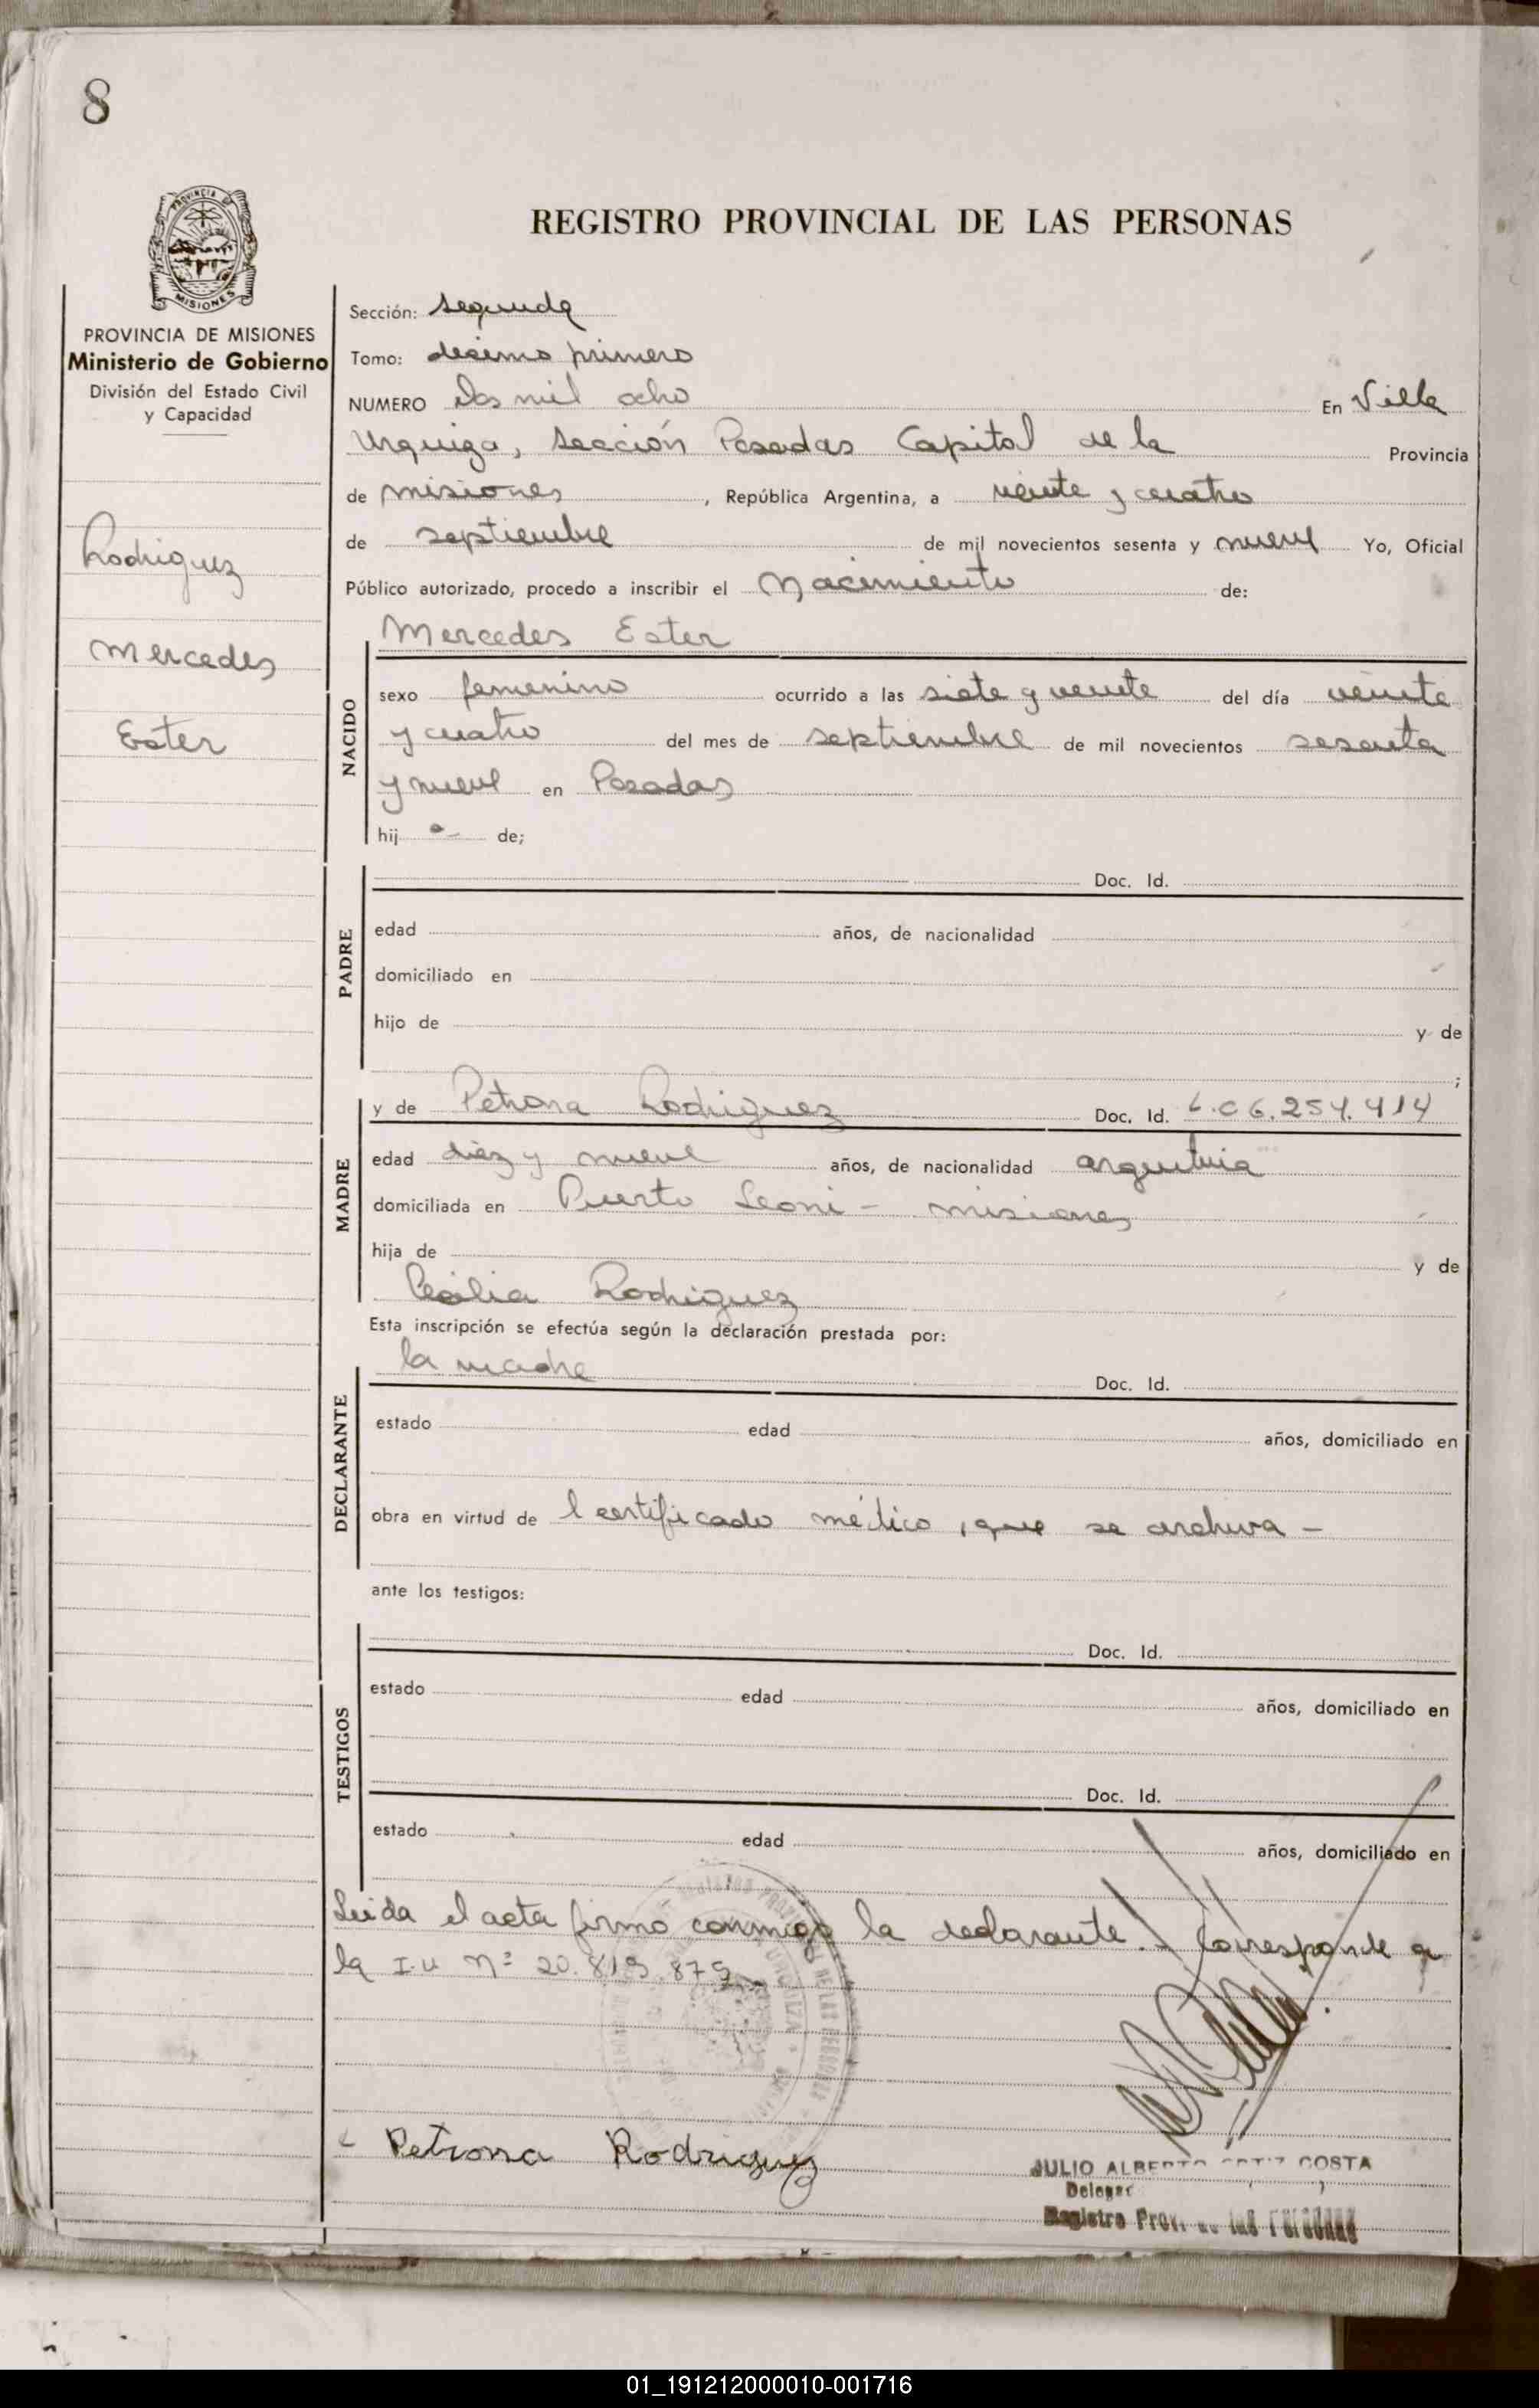 8
PROVINCIA DE
MISIONES
REGISTRO PROVINCIAL DE LAS PERSONAS
PROVINCIA DE MISIONES
Ministerio de Gobierno
División del Estado Civil
y Capacidad
Rodriguez
Mercedes
Ester
Sección: segunda
Tomo: decimo primero
NUMERO Dos mil ocho En Villa
Urquiza, sección Posadas Capital de la Provincia
de misiones, República Argentina, a veinte y cuatro
de septiembre de mil novecientos sesenta y nueve Yo, Oficial
Público autorizado, procedo a inscribir el Nacimiento de:
Mercedes Ester
NACIDO
sexo femenino ocurrido a las siete y veinte del día veinte
y cuatro del mes de septiembre de mil novecientos sesenta
y nueve en Posadas
hij a- de;
PADRE
Doc. Id.
edad años, de nacionalidad
domiciliado en
hijo de y de
;
MADRE
y de Petrona Rodriguez Doc. Id. L.C 6.254.414
edad diez y nueve años, de nacionalidad argentina
domiciliada en Puerto Leoni - misiones
hija de y de
Cecilia Rodriguez
Esta inscripción se efectúa según la declaración prestada por:
DECLARANTE
la madre Doc. Id.
estado edad años, domiciliado en
obra en virtud de l certificado médico, que se archiva -
ante los testigos:
TESTIGOS
Doc. Id.
estado edad años, domiciliado en
Doc. Id.
estado edad años, domiciliado en
Leida el acta firma conmigo la declarante. Corresponde a
la I.u Nº 20.819.879
Petrona Rodriguez
JULIO ALBERTO ORTIZ COSTA
Registro Prov. de las Personas
01_191212000010-001716